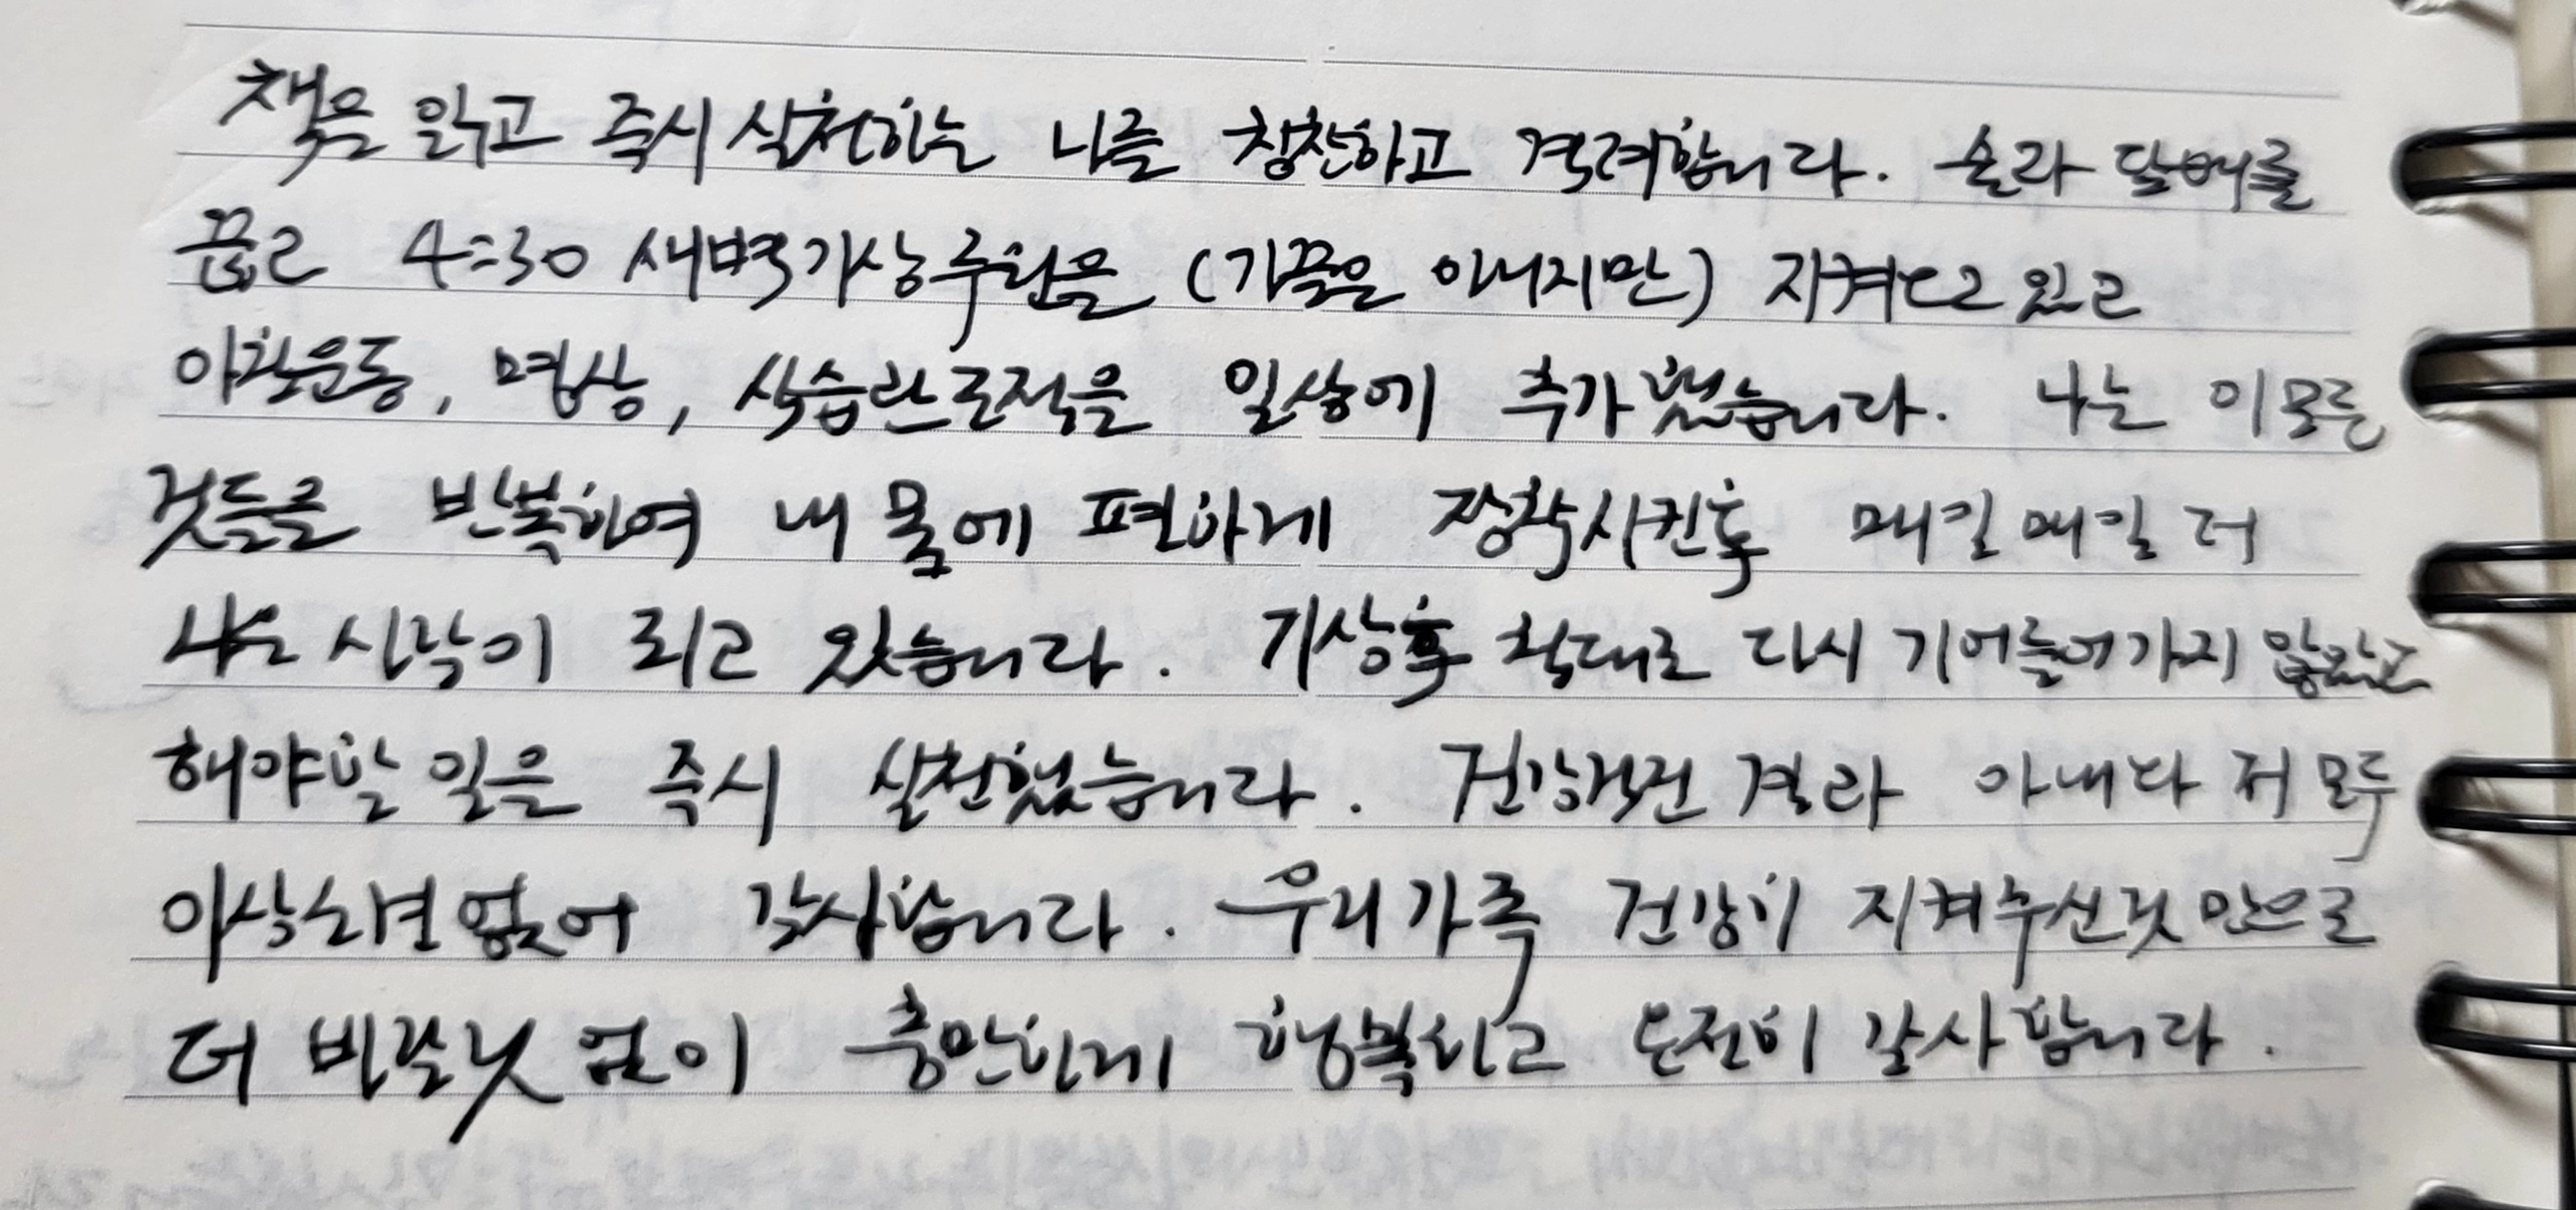 책을 읽고 즉시 실천하는 나를 칭찬하고 격려합니다. 술과 담배를
끊고 4:30 새벽기상루틴을 (기끔은 아니지만) 지켜나고 있고
아침운동, 명상, 식습관조절을 일상에 추가했습니다. 나는 이 모든
것들을 반복하여 내 몸에 편하게 장착시킨후 매일매일 더
나은 사람이 되고 있습니다. 기상후 침대로 다시 기어들어가지 않았고
해야할 일을 즉시 실천했습니다. 건강검진 결과 아내와 저 모두
이상소견 없어 감사합니다. 우리가족 건강히 지켜주신것 만으로
더 바랄것 없이 충만하게 행복하고 온전히 감사합니다.